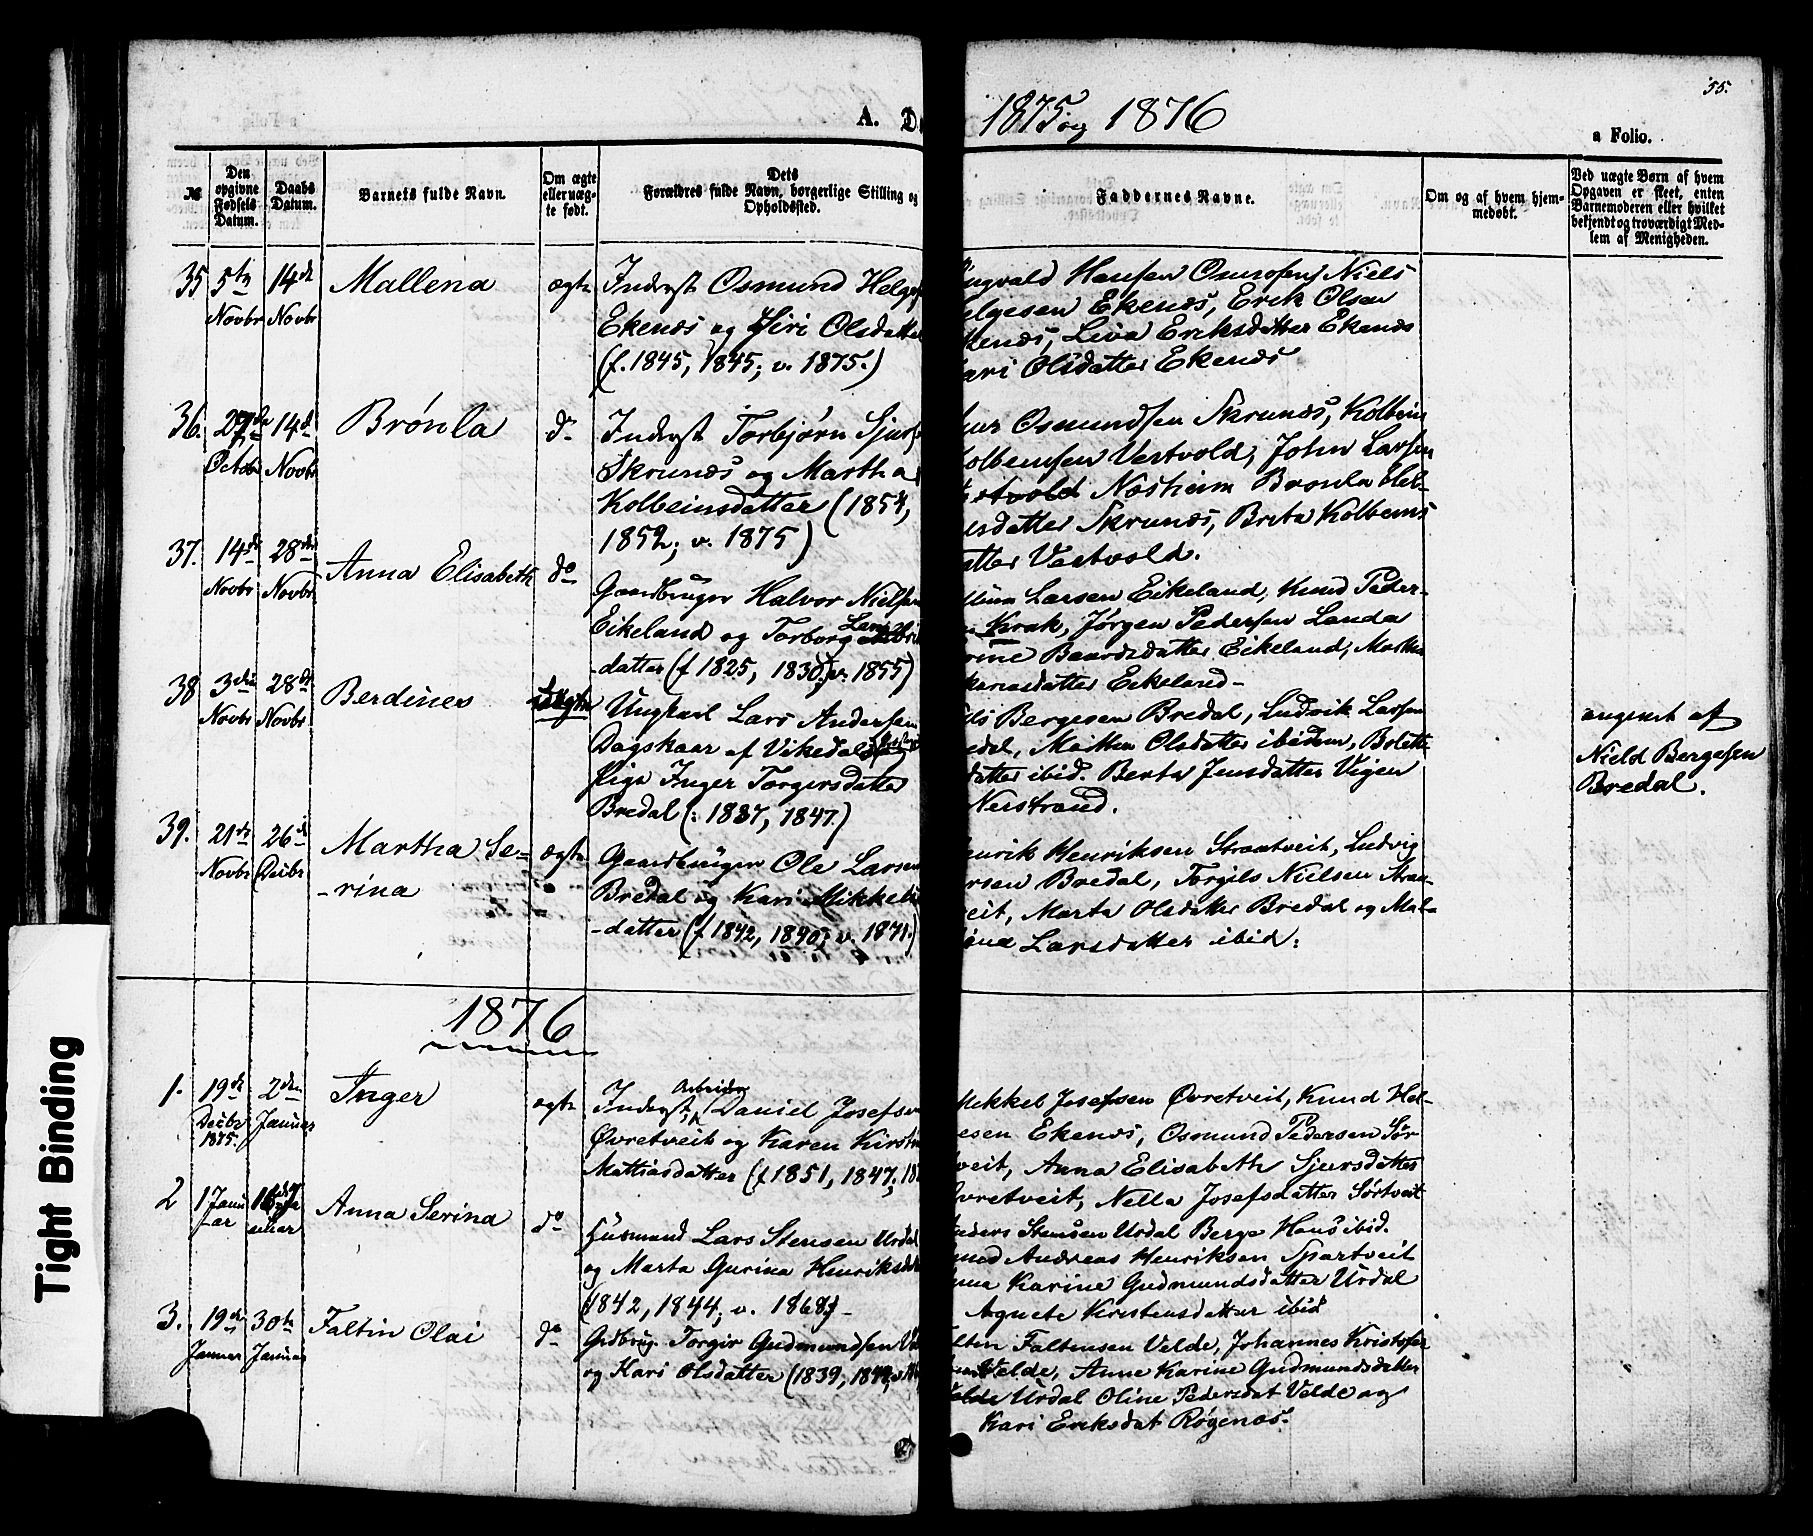 55.
A. D
1875 og 1876
a Folio.
№
Den opgivne Fødsels Datum.
Daabs Datum.
Barnets fulde Navn.
Om ægte eller uægte født.
Dets Forældres fulde Navn, borgerlige Stilling og Opholdssted.
Faddernes Navne.
Om og af hvem hjemmedøbt.
Ved uægte Børn af hvem Opgaven er skeet, enten Barnemoderen eller hvilket bekjendt og troværdigt Medlem af Menigheden.
35 5te Novbr 14de Novbr Mallena ægte
Inderst Osmund Helges
Ekenæs og Siri Olsdatter
(f. 1845, 1845; v. 1875.)
Hansen Niels
Ekenæs, Erik Olsen
Eriksdatter Ekenæs
Olsdatter Ekenæs
36. 27de Octob 14d Novbr Brønla do
Inderst Torbjørn Sjurs
Skrunæs og Martha
Kolbeinsdatter (1854,
1852; v. 1875)
Osmundsen Skrunæs, Kolbein
Kolbensen Vestvold, John Larsen
Næsheim Bronla
datter Skrunæs, Brita Kolbens
Vestvold.
37. 14de Novbr 28de Novbr Anna Elisabeth do
Gaardbruger Halvor Nielsen
Eikeland og Torborg Lars
datter (f 1825, 1830; v. 1855)
Larsen Eikeland, Knud Peder-
Krak, Jørgen Pedersen Landa
Baardsdatter Eikeland, Martha
datter Eikeland-
38 3die Novbr 28de Novbr Berdines uægte
Ungkarl Lars Andersen
Dagskaar af Vikedal
Pige Inger Torgersdatter
Bredal (: 1837, 1847.)
Bergesen Bredal, Ludvik Larsen
Olsdatter ibidem,
datter ibid. Berta Jensdatter Vigen
Nerstrand.
angivet af
Nield Bergesen
Bredal.
39. 21de Novbr 26de Decbr Martha Se=
-rina
ægte
Gaardbruger Ole Larsen
Bredal og Kari Mikkels
-datter (f 1842, 1840; v. 1871.)
Henriksen Straatveit, Ludvig
Larsen Bredal, Torgils Nielsen
Marta Olsdatter Bredal og
Larsdatter ibid:
1876
1. 19de Decbr 1875. 2den Januar Inger ægte
Arbeider
Inderst, Daniel Josefsen
Øvretveit og Karen Kirstin
Mattiasdatter (f 1851, 1847; 18
Mekkel Josefsen Øvretveit, Knud Hel-
gesen Ekenæs, Osmund Pedersen Sør
tveit, Anna Elisabeth Sjursdatter
Øvretveit, Nella Josefsdatter Sørtveit
2 1 Januar 16de Januar Anna Serina do
Husmand Lars Stensen Urdal
og Marta Gurina Henriksdat
(1842, 1844; v. 1868)-
Anders Stensen Urdal Berge Hans ibid.
Andreas Henriksen
Karine Gudmundsdatter Urdal
Agnete Kristensdatter ibid
3. 19de Januar 30te Januar Faltin Olai do
Grdbrug. Torgir Gudmundsen
og Kari Olsdatter (1839,
Faltensen Velde, Johannes Kristofer
Velde, Anne Karine Gudmundsdatter
Urdal Oline Pedersdat Velde og
Kari Eriksdat Røgenæs.
Tight Binding